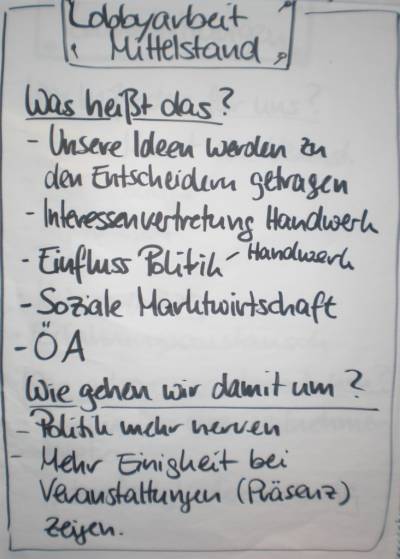 Lobbyarbeit
Mittelstand
Was heißt das?
- Unsere Ideen werden zu
den Entscheidern getragen
- Interessenvertretung Handwerk
- Einfluss Politik - Handwerk
- Soziale Marktwirtschaft
- ÖA
Wie gehen wir damit um?
- Politik mehr nerven
- Mehr Einigkeit bei
Veranstaltungen (Präsenz)
zeigen.